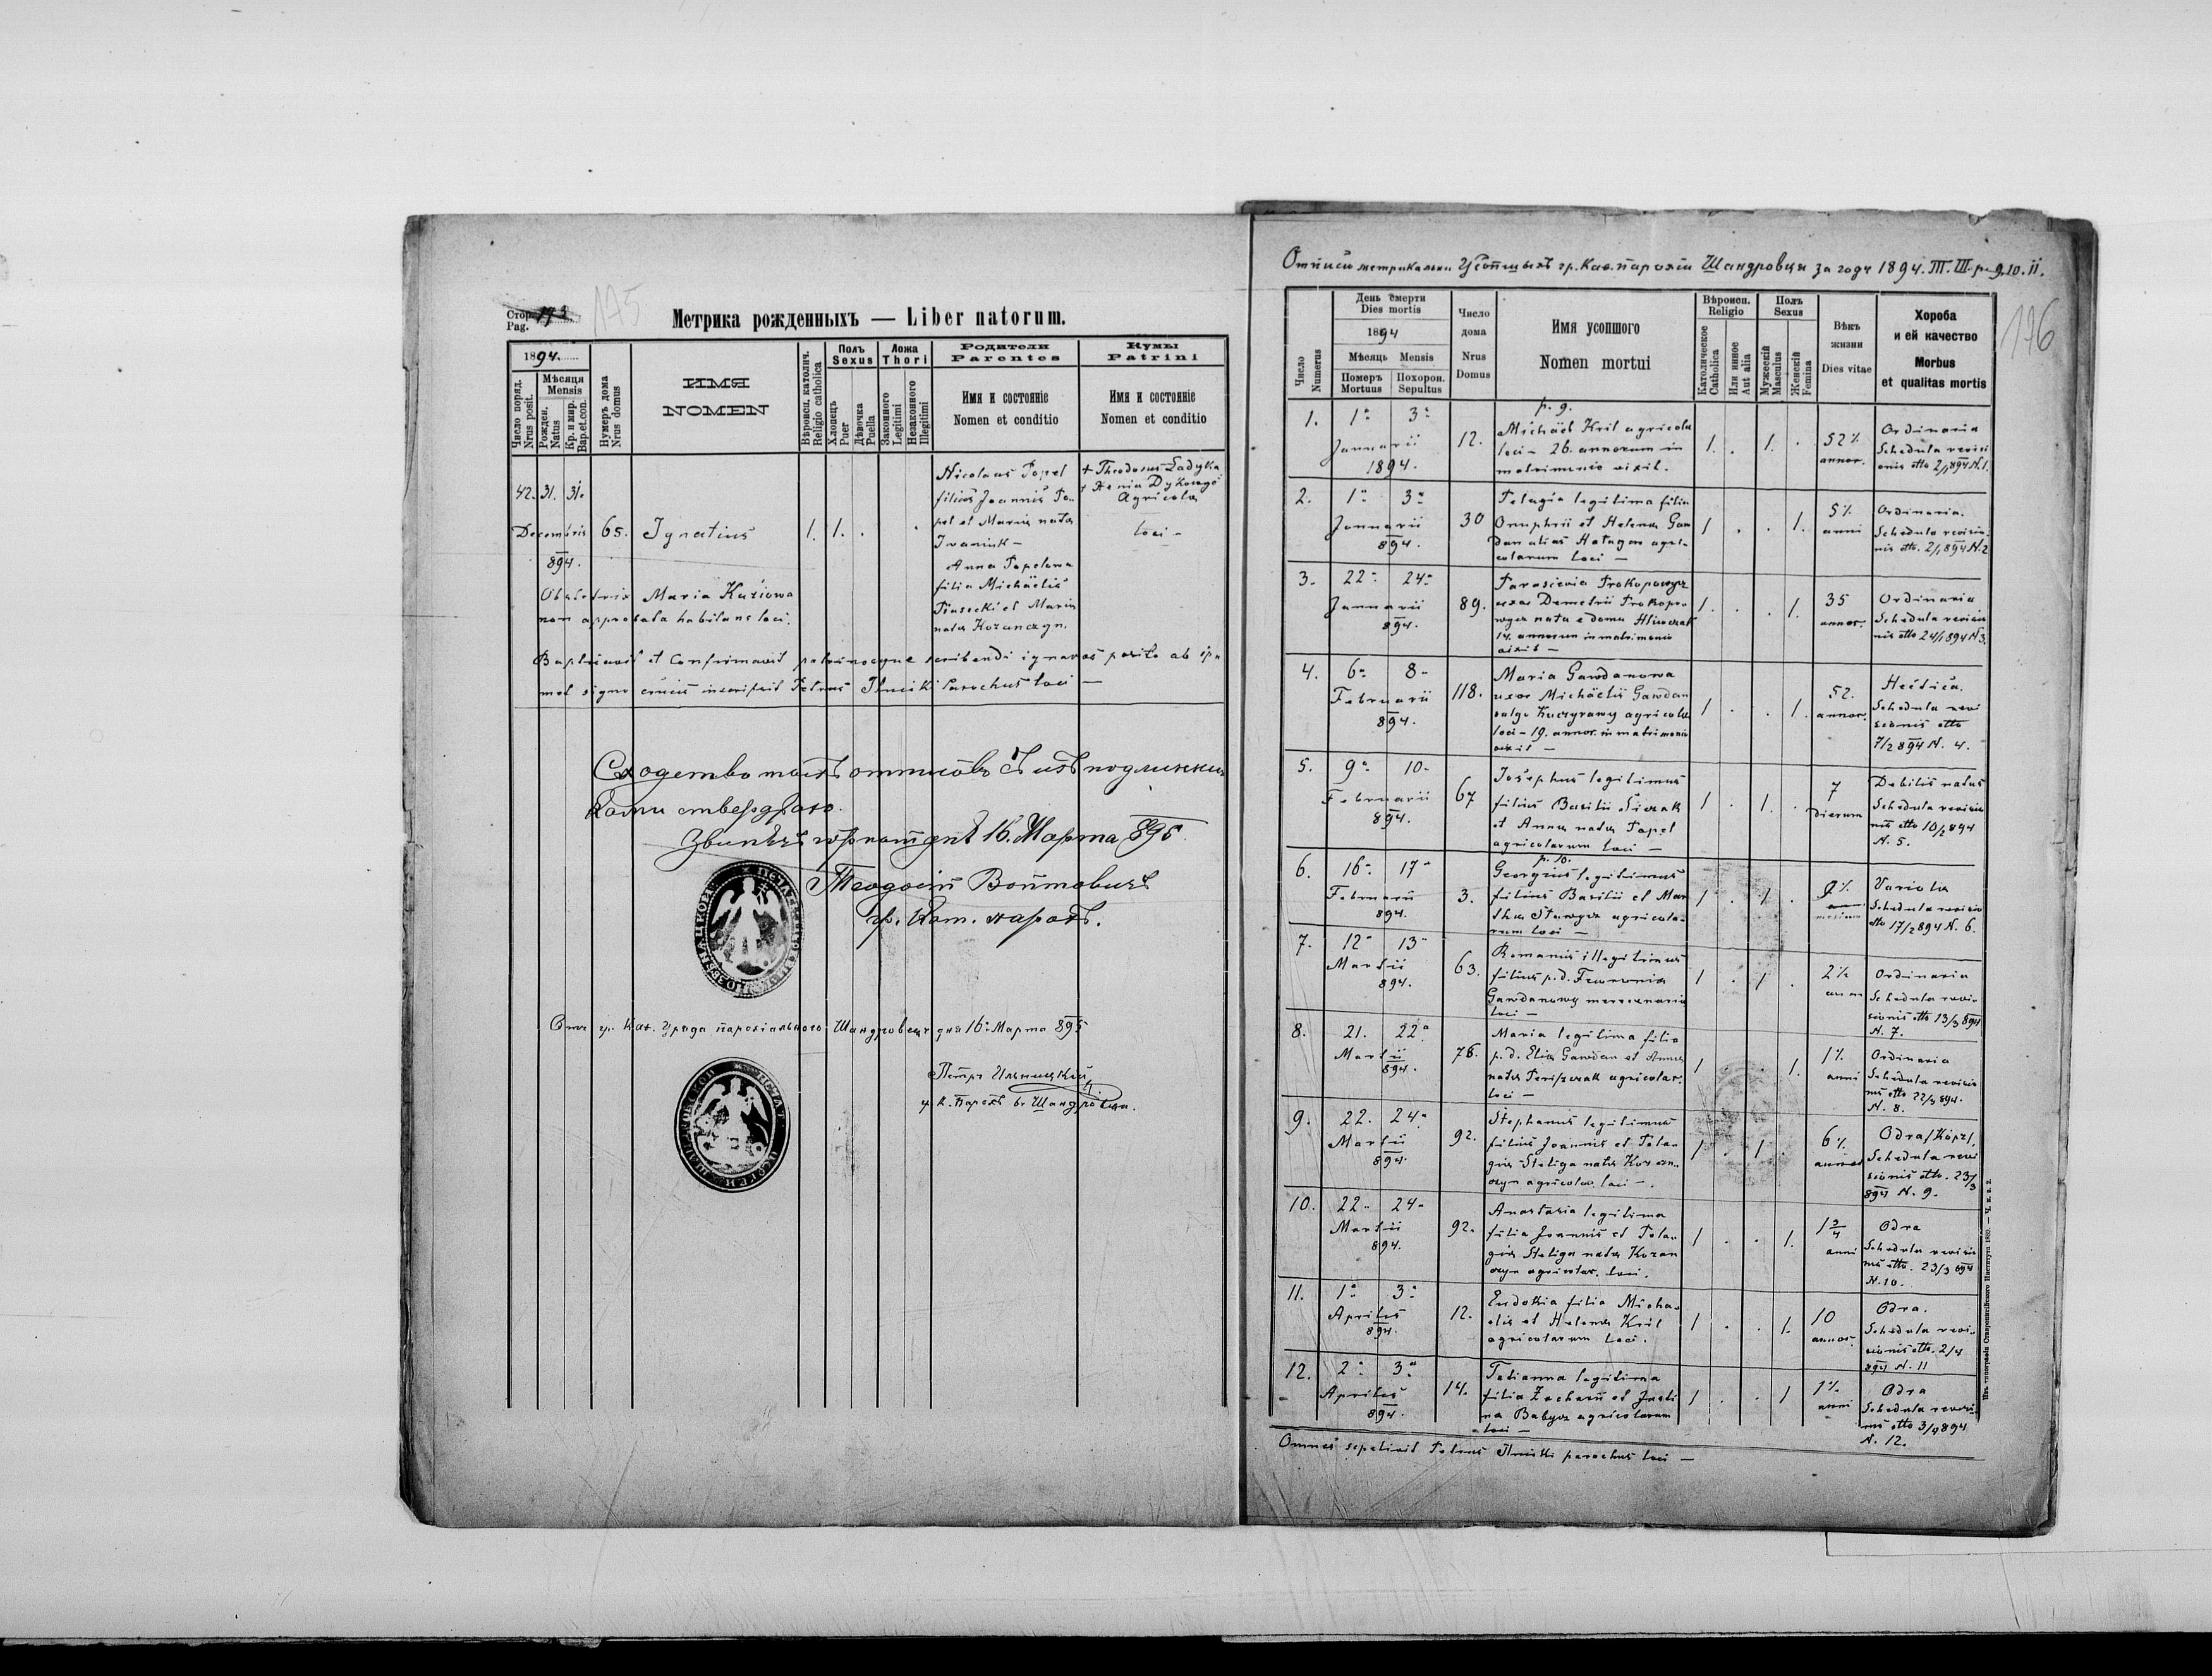 Стор.
Pag.
175
Метрика рожденныхъ — Liber natorum.
1894.
Число поряд.
Nrus posit.
Мѣсяця
Mensis
Рожден.
Natus
Кр. и мир.
Bap.et.con.
Нумеръ дома
Nrus domus
ИМЯ
NOMEN
Вѣроисп. католич.
Religio catholica
Полъ
Sexus
Хлопецъ
Puer
Дѣвочка
Puella
Ложа
Thori
Законного
Legitimi
Незаконного
Illegitimi
Родители
Parentes
Имя и состоянiе
Nomen et conditio
Кумы
Patrini
Имя и состоянiе
Nomen et conditio
42. 31. 31.
Decembris
894.
65. Ignatius 1. 1. . .
Nicolaus Popel
filius Joannis Po-
pel et Maria nata
Iwanink —
Anna Popelowa
filia Michäelis
Piasecki et Maria
nata Kozanczyn.
+ Theodosius Ladyka
+ Xenia
Agricolae
loci —
Obstetrix Maria Kuziowa
non approbata habitans loci.
Baptisavit et Confirmavit patrinosque scribendi ignaros posito ab ip-
met signo crucis inscripsit Petrus Ilnicki Parochus loci —
Сходство тыхъ отписôвъ съ ихъ подлинни-
ками стверджаю.
дня 16. Марта 895.
Теодосiй Войтовичъ
гр. кат. парохъ.
Отъ гр. кат. Уряда парохiального Шандровецъ дня 16. Марта 895
Петръ Ильницкiй
г. к. Парохъ въ Шандровци.
Отписи метрикальни Усопшыхъ гр. Каѳ. парохiи Шандровця за годъ 1894. Т. III. p. 9. 10. 11.
176
Число
Numerus
День смерти
Dies mortis
1894
Мѣсяць Mensis
Померъ
Mortuus
Похорон.
Sepultus
Число
дома
Nrus
Domus
Имя усопшого
Nomen mortui
Вѣроисп.
Religio
Католическое
Catholica
Или инное
Aut alia
Полъ
Sexus
Мужескiй
Masculus
Женскiй
Femina
Вѣкъ
жизни
Dies vitae
Хороба
и ей качество
Morbus
et qualitas mortis
p. 9.
1. 1. 3.
Januarii
1894.
12.
Michäel Kril agricola
loci — 26. annorum in
matrimonio vixit.
1. . 1. .
52 ½
annor.
Ordinaria
Schedula revisi
onis dtto 2/1 894 N. 1.
2. 1. 3.
Januarii
894.
30
Pelagia legitima filia
Onuphrii et Helena Gaw
dan alias Hatagan agri-
colarum loci —
1 . . 1.
5 ½
anni
Ordinaria.
Schedula revisio-
nis dtto. 2/1 894 N. 2
3. 22. 24.
Januarii
894.
89.
Parascevia Prokopowycz
uxor Demetrii Prokopo-
wycz nata e domo
14. annorum in matrimonio
vixit —
1. . . 1.
35
annor.
Ordinaria
Schedula revisio
nis dtto 24/1 894 N 3.
4. 6. 8.
Februarii
894.
118.
Maria Gawdanowa
uxor Michäelis Gawdan
vulgo agricola
loci — 19. annor. in matrimonio
vixit —
1 . . 1.
52.
annor.
Hectica.
Schedula revi
sionis dtto
7/2 894 N. 4.
5. 9. 10.
Februarii
894.
67
Josephus legitimus
filius Basilii Siczak
et Anna nata Popel
agricolarum loci —
1 . 1. .
7
dierum
Debilis natus
Schedula revisio
nis dtto 10/2 894
N. 5.
p. 10.
6. 16. 17.
Februarii
894.
3.
Georgius legitimus
filius Basilii et Mar
tha agricola-
rum loci —
1 . 1 .
Variola
Schedula revisio
dtto 17/2 894 N. 6.
7. 12. 13.
Martii
894.
63.
Romanus illegitimus
filius p. d. Fewronia
Gawdanowy mercenaria
loci —
1 . 1 .
2 ½
Ordinaria
Schedula revi-
sionis dtto 13/3 894
N. 7.
8. 21. 22.
Martii
894.
76.
Maria legitima filia
p. d. Elia Gawdan et Anna
nata agricolar.
loci —
1 . . 1.
1 ½
anni
Ordinaria
Schedula revisio
nis dtto 22/3 894.
N. 8.
9. 22. 24.
Martii
894.
92.
Stephanus legitimus
filius Joannis et Pela-
gia Steliga nata Kozan-
czyn agricolar. loci —.
1 . 1 .
6 ½
annor
Odra
Schedula revi
sionis dtto. 23/3
894 N. 9.
10. 22. 24.
Martii
894.
92.
Anastasia legitima
filia Joannis et Pela-
gia Steliga nata Kozan
czyn agricolar. loci.
1 . . 1.
1 3/4
anni
Odra
Schedula revisio
nis dtto. 23/3 894
N. 10.
11. 1. 3.
Aprilis
894.
12.
Eudokia filia Micha-
elis et Helena Kril
agricolarum loci.
1 . . 1.
10
annor.
Odra.
Schedula revi-
sionis dtto. 2/4
894 N. 11
12. 2. 3.
Aprilis
894.
14.
Tatianna legitima
filia Zacharii et Justi
na Babycz agricolarum
loci —
1 . . 1
1 ½
anni
Odra
Schedula revisio
nis dtto 3/4 894
N. 12.
Omnes sepelivit Petrus Ilnicki parochus loci —
Изъ типографiи Ставропигiйского Института 1889. — Ч. к. з. 2.